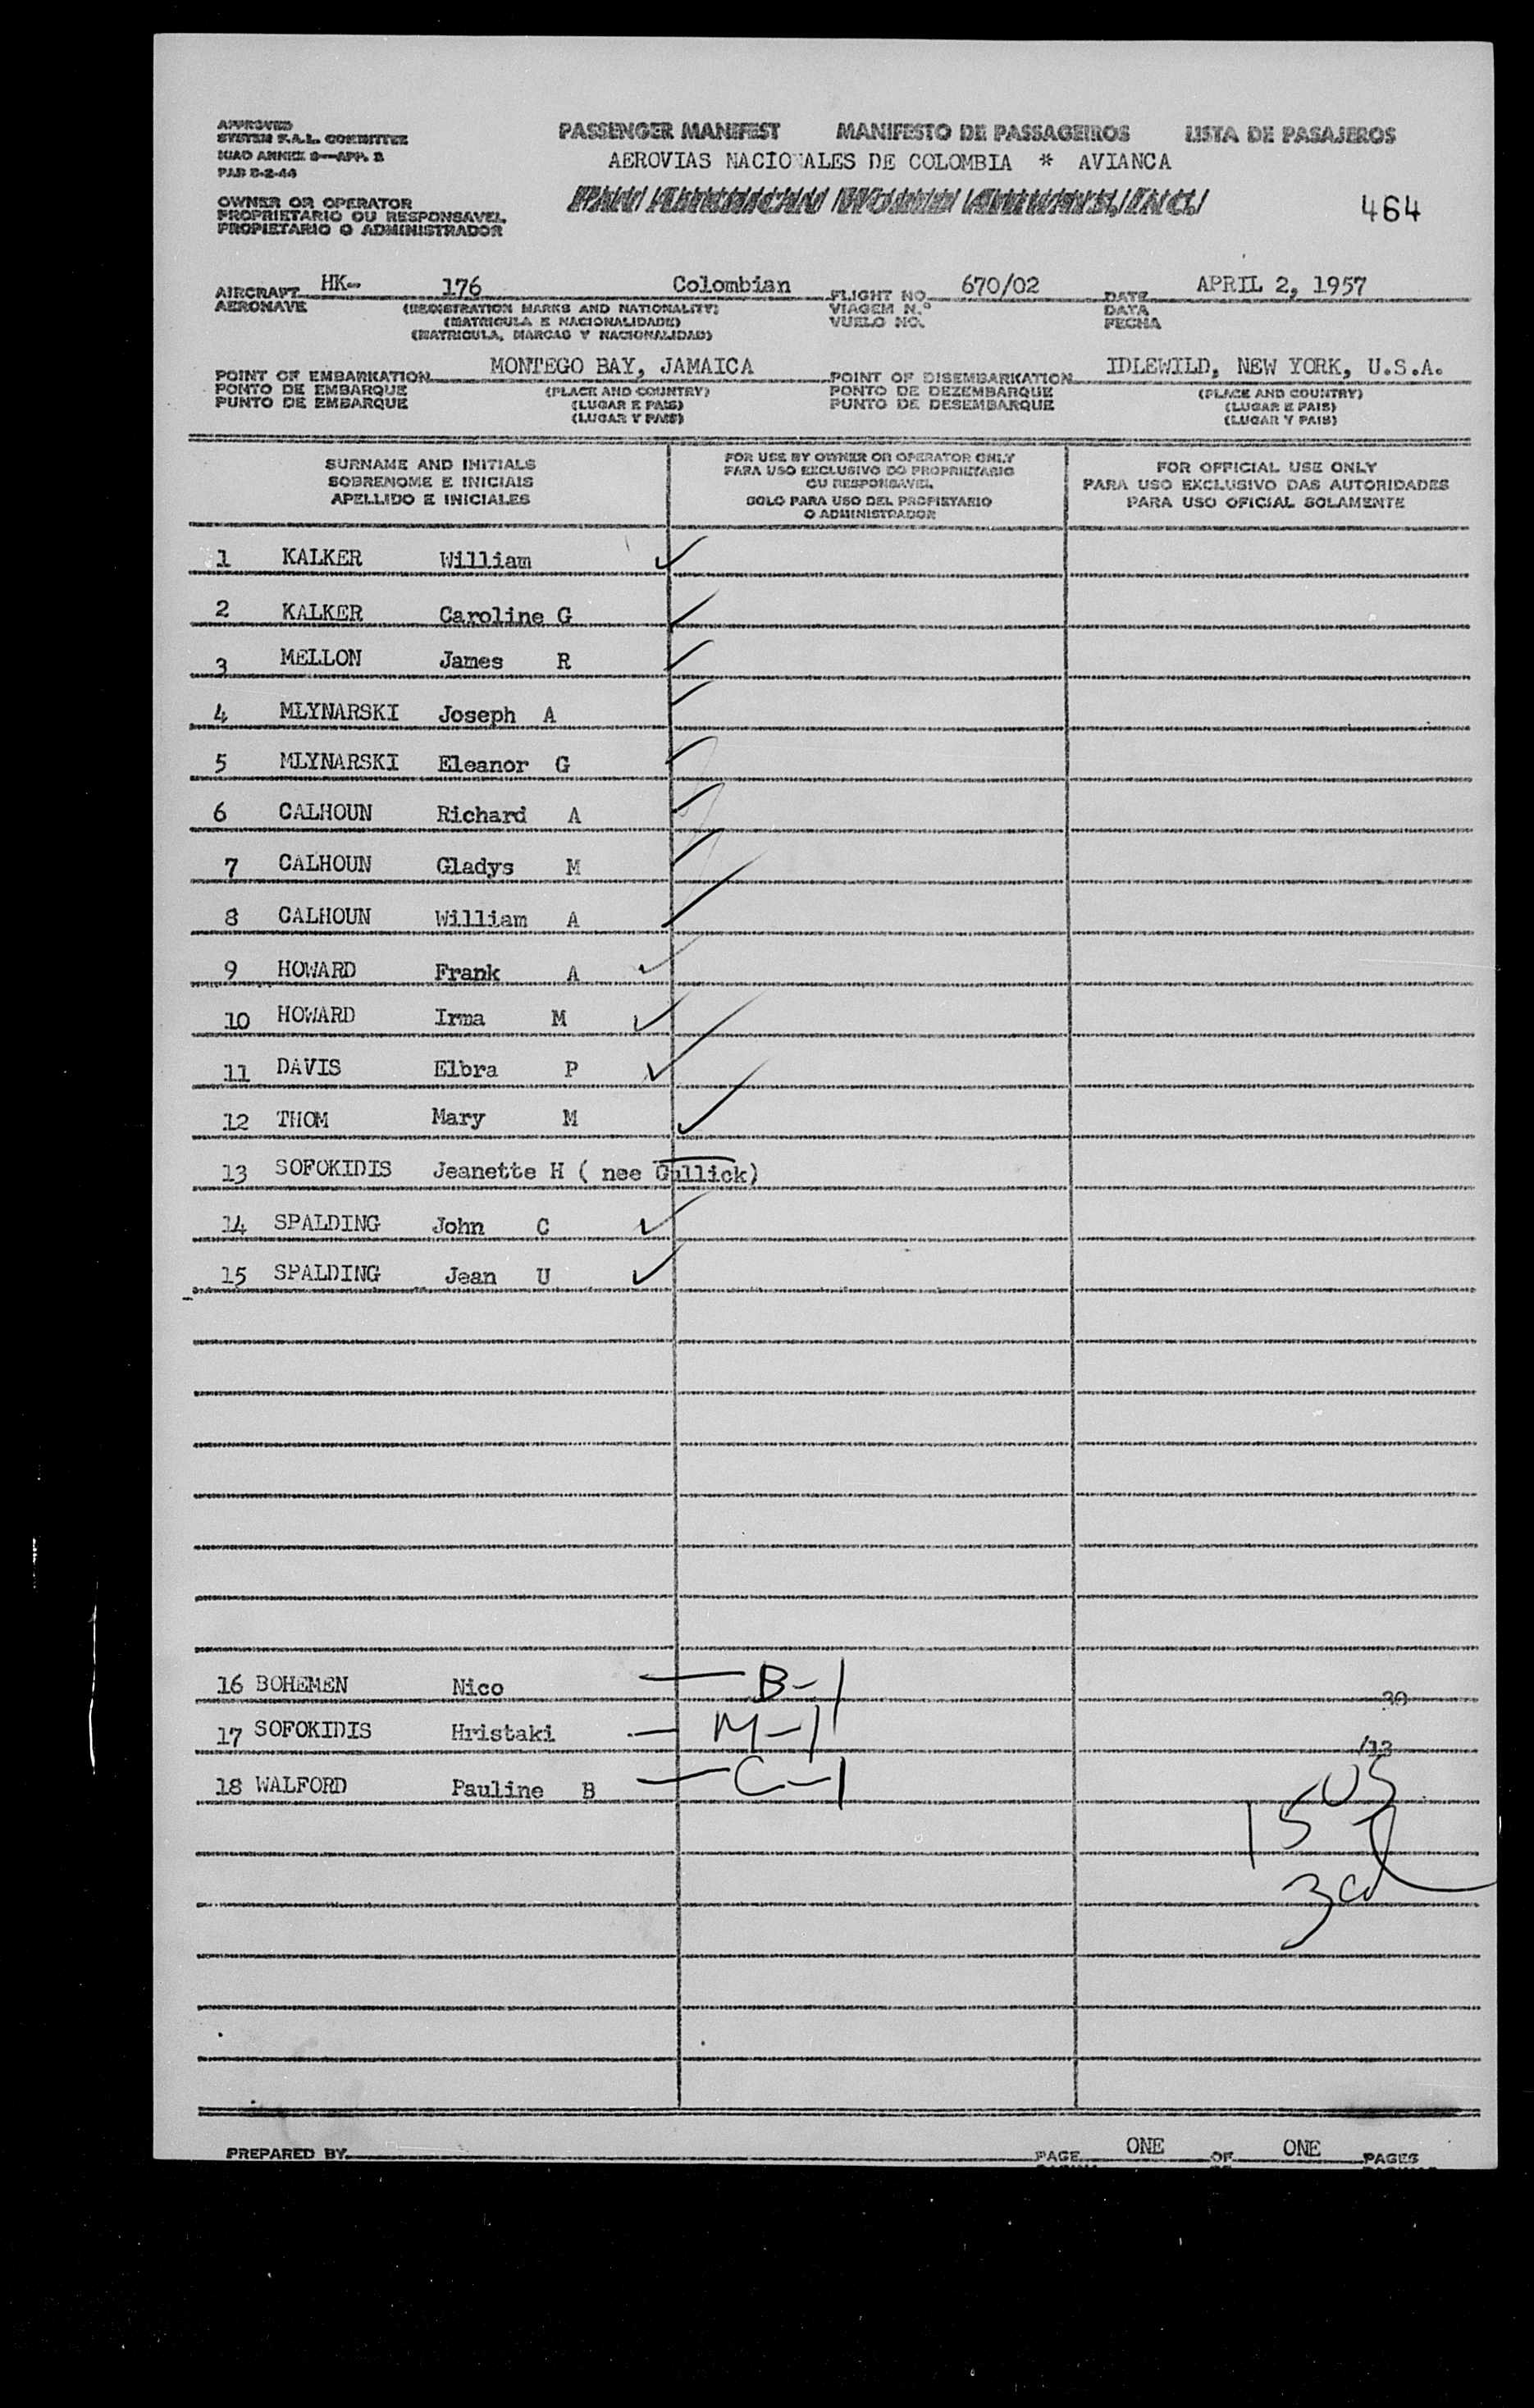 APPROVED
SYSTEM F.A.L. COMMITTEE
ICAO ANNEX 9—APP. 3
PAB D-2-44
PASSENGER MANIFEST MANIFESTO DE PASSAGEIROS LISTA DE PASAJEROS
AEROVIAS NACIONALES DE COLOMBIA * AVIANCA
PAN AMERICAN WORLD AIRWAYS, INC.
464
OWNER OR OPERATOR
PROPRIETARIO OU RESPONSAVEL
PROPIETARIO O ADMINISTRADOR
AIRCRAFT HK- 176 Colombian FLIGHT NO. 670/02 DATE APRIL 2, 1957
AERONAVE (REGISTRATION MARKS AND NATIONALITY) VIAGEM N.º DATA
(MATRICULA E NACIONALIDADE) VUELO NO. FECHA
(MATRICULA, MARCAS Y NACIONALIDAD)
POINT OF EMBARKATION MONTEGO BAY, JAMAICA POINT OF DISEMBARKATION IDLEWILD, NEW YORK, U.S.A.
PONTO DE EMBARQUE (PLACE AND COUNTRY) PONTO DE DEZEMBARQUE (PLACE AND COUNTRY)
PUNTO DE EMBARQUE (LUGAR E PAIS) PUNTO DE DESEMBARQUE (LUGAR E PAIS)
(LUGAR Y PAIS) (LUGAR Y PAIS)
SURNAME AND INITIALS
SOBRENOME E INICIAIS
APELLIDO E INICIALES
FOR USE BY OWNER OR OPERATOR ONLY
PARA USO EXCLUSIVO DO PROPRIETARIO
OU RESPONSAVEL
SOLO PARA USO DEL PROPIETARIO
O ADMINISTRADOR
FOR OFFICIAL USE ONLY
PARA USO EXCLUSIVO DAS AUTORIDADES
PARA USO OFICIAL SOLAMENTE
1 KALKER William
2 KALKER Caroline G
3 MELLON James R
4 MLYNARSKI Joseph A
5 MLYNARSKI Eleanor G
6 CALHOUN Richard A
7 CALHOUN Gladys M
8 CALHOUN William A
9 HOWARD Frank A
10 HOWARD Irma M
11 DAVIS Elbra P
12 THOM Mary M
13 SOFOKIDIS Jeanette H ( nee Gullick)
14 SPALDING John C
15 SPALDING Jean U
16 BOHEMEN Nico B-1
30
17 SOFOKIDIS Hristaki M-1
/13
18 WALFORD Pauline B C-1
15
3
PREPARED BY PAGE ONE OF ONE PAGES